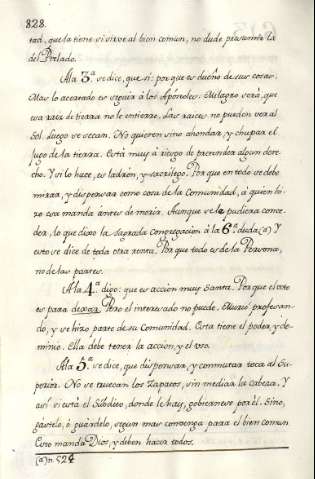 828.
tad, que da tiene si sirve al bien comun, no dude presumirla
del Prelado.
A la 3.ª se dice, que si: por que es dueño de sus cosas.
Mas lo acertado es seguir à los Apóstoles. Milagro será, que
esa raiz de tierra no le entierre. Las raices no pueden ver al
Sol. Luego se secan. No quieren sino ahondar, y chupar el
Jugo de la tierra. Está muy à riesgo de pretender algun dere-
cho. Y si lo hace, es ladrón, y sacrilego. Por que en todo se debe
mirar, y dispensar como cosa de la Comunidad, á quien hi-
zo esa manda antes de morir. Aunque se le pudiera conce-
der, lo que dixo la Sagrada Congregacion à la 6.ª duda (a) Y
esto se dice de toda otra renta. Por que todo es de la Persona,
no de las partes.
A la 4.ª digo: que es acción muy Santa. Por que el voto
es para dexar. Pero el interesado no puede. Murió profesan-
do, y se hizo parte de su Comunidad. Esta tiene el poder, y do-
minio. Ella debe tener la acción, y el uso.
A la 5.ª se dice, que dispensar, y conmutar toca al Su-
perior. No se truecan los Zapatos, sin mediar la Cabeza. Y
asi si está el Subdito, donde le hay, gobiernese por él. Sino,
gastelo, ó guardelo, segun mas convenga para el bien comun
Esto manda Dios, y deben hacer todos.
(a) n. 524